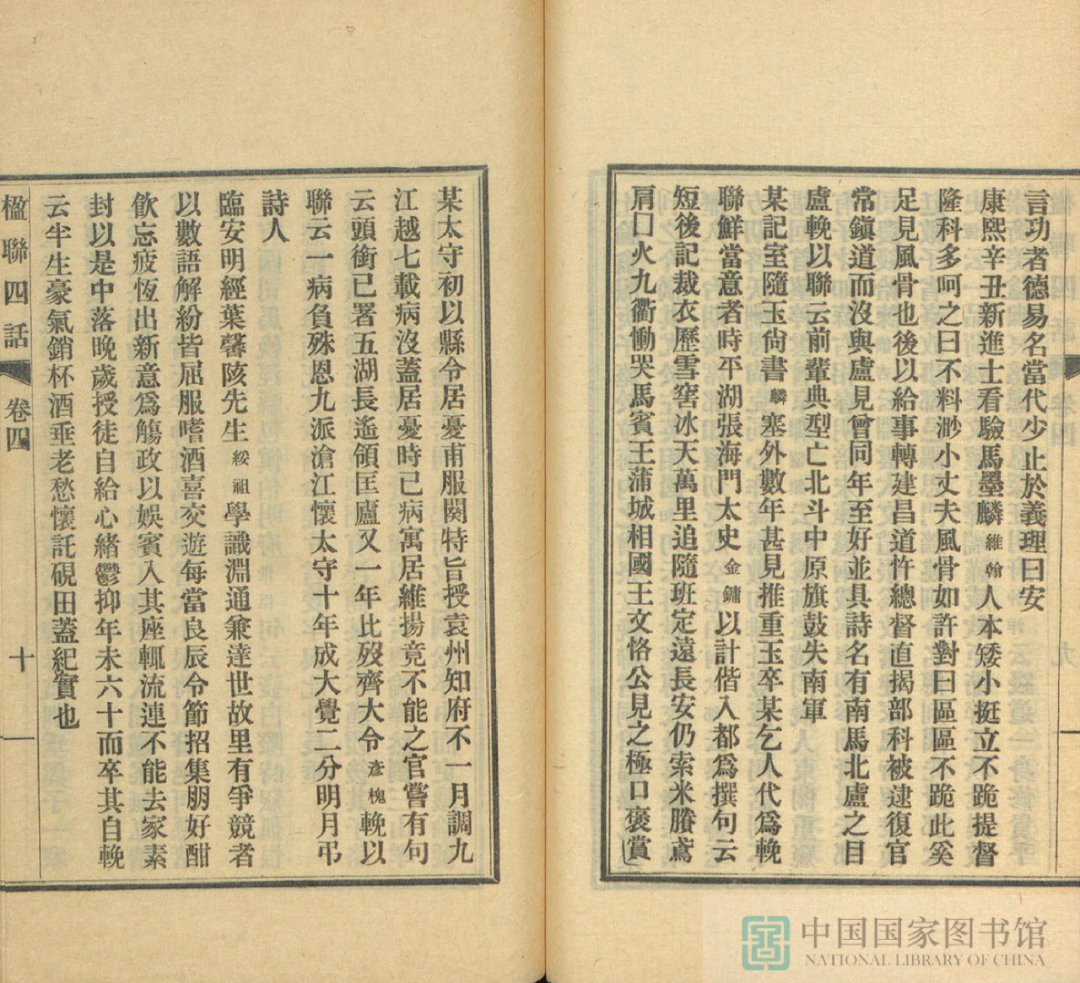 言功者德易名當代少止於義理曰安
康熙辛丑新進士看驗馬墨麟維翰人本矮小挺立不跪提督
隆科多呵之曰不料渺小丈夫風骨如許對曰區區不跪此奚
足見風骨也後以給事轉建昌道忤總督直揭部科被逮復官
常鎭道而沒與盧見曾同年至好並具詩名有南馬北盧之目
盧輓以聯云前輩典型亡北斗中原旗鼓失南軍
某記室隨玉尙書麟塞外數年甚見推重玉卒某乞人代爲輓
聯鮮當意者時平湖張海門太史金鏞以計偕入都爲撰句云
短後記裁衣歷雪窖冰天萬里追隨班定遠長安仍索米賸鳶
肩囗火九衢慟哭馬賓王蒲城相國王文恪公見之極口褒賞
某太守初以縣令居憂甫服闋特旨授袁州知府不一月調九
江越七載病沒蓋居憂時已病寓居維揚竟不能之官嘗有句
云頭銜已署五湖長遙領匡廬又一年比歿齊大令彥槐輓以
聯云一病負殊恩九派滄江懷太守十年成大覺二分明月弔
詩人
臨安明經葉馨陔先生綏祖學識淵通兼達世故里有爭競者
以數語解紛皆屈服嗜酒喜交遊每當良辰令節招集朋好酣
飲忘疲恆出新意爲觴政以娛賓入其座輒流連不能去家素
封以是中落晚歲授徒自給心緒鬱抑年未六十而卒其自輓
云半生豪氣銷杯酒垂老愁懷託硯田蓋紀實也
楹聯四話 卷四 十
中国国家图书馆
NATIONAL LIBRARY OF CHINA